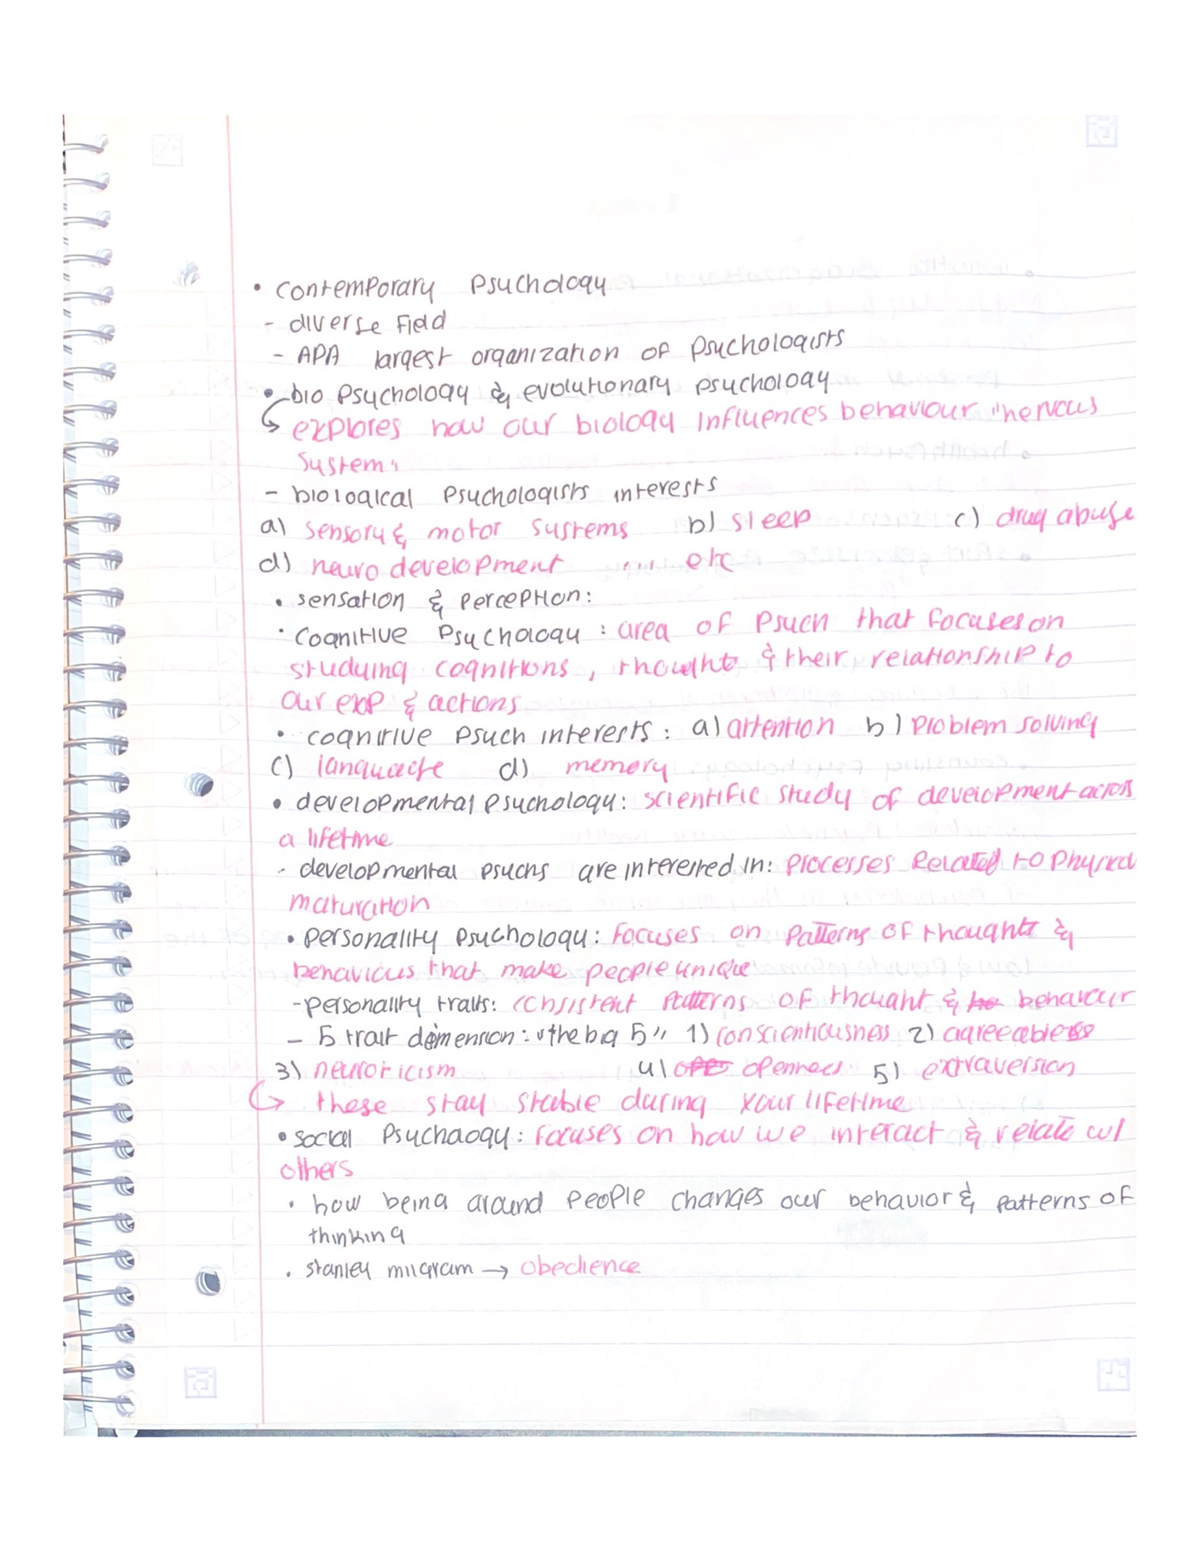 • contemporary Psychology
- diverse Field
- APA largest organization of Psychologists
• bio Psychology & evolutionary psychology
↳ explores how our biology influences behaviour "nervous
System"
- biological Psychologists interests
a) sensory & motor systems b) sleep c) drug abuse
d) neuro development .... etc
• sensation & Perception:
• Cognitive Psychology : area of Psych that focuses on
studying cognitions, thought & their relationship to
our exp & actions
• cognitive Psych interests : a) attention b) Problem solving
c) language d) memory
• developmental Psychology: scientific study of development across
a lifetime
- developmental psychs are interested in: Processes Related to Physical
maturation
• Personality Psychology: Focuses on Patterns of thoughts &
behaviours that make people unique
- Personality traits: consistent Patterns of thought & behaviour
- 5 trait dimension: "the big 5" 1) conscientiousness 2) agreeable
3) neuroticism 4) openness 5) extraversion
↳ these stay stable during your lifetime
• social Psychology: Focuses on how we interact & relate w/
others
• how being around People changes our behavior & Patterns of
thinking
• Stanley milgram → obedience